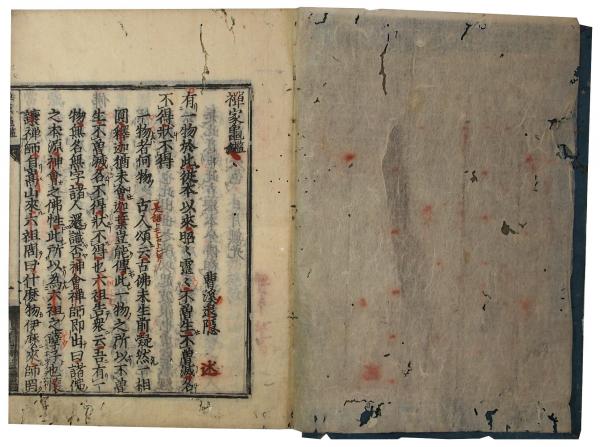 禪家龜鑑
曹溪退隱 述
有一物於此從本以來昭昭靈靈不曾生不曾滅名
不得狀不得
一物者何物 古人頌云古佛未生前凝然一相
圓釋迦猶未會迦葉豈能傳此一物之所以不曾
生不曾滅名不得狀不得也六祖告衆云吾有一
物無名無字諸人還識否神會禪師即出曰諸佛
之本源神會之佛性此所以爲六祖之孽子也懷
讓禪師自嵩山來六祖問曰什麼物伊麼來師罔